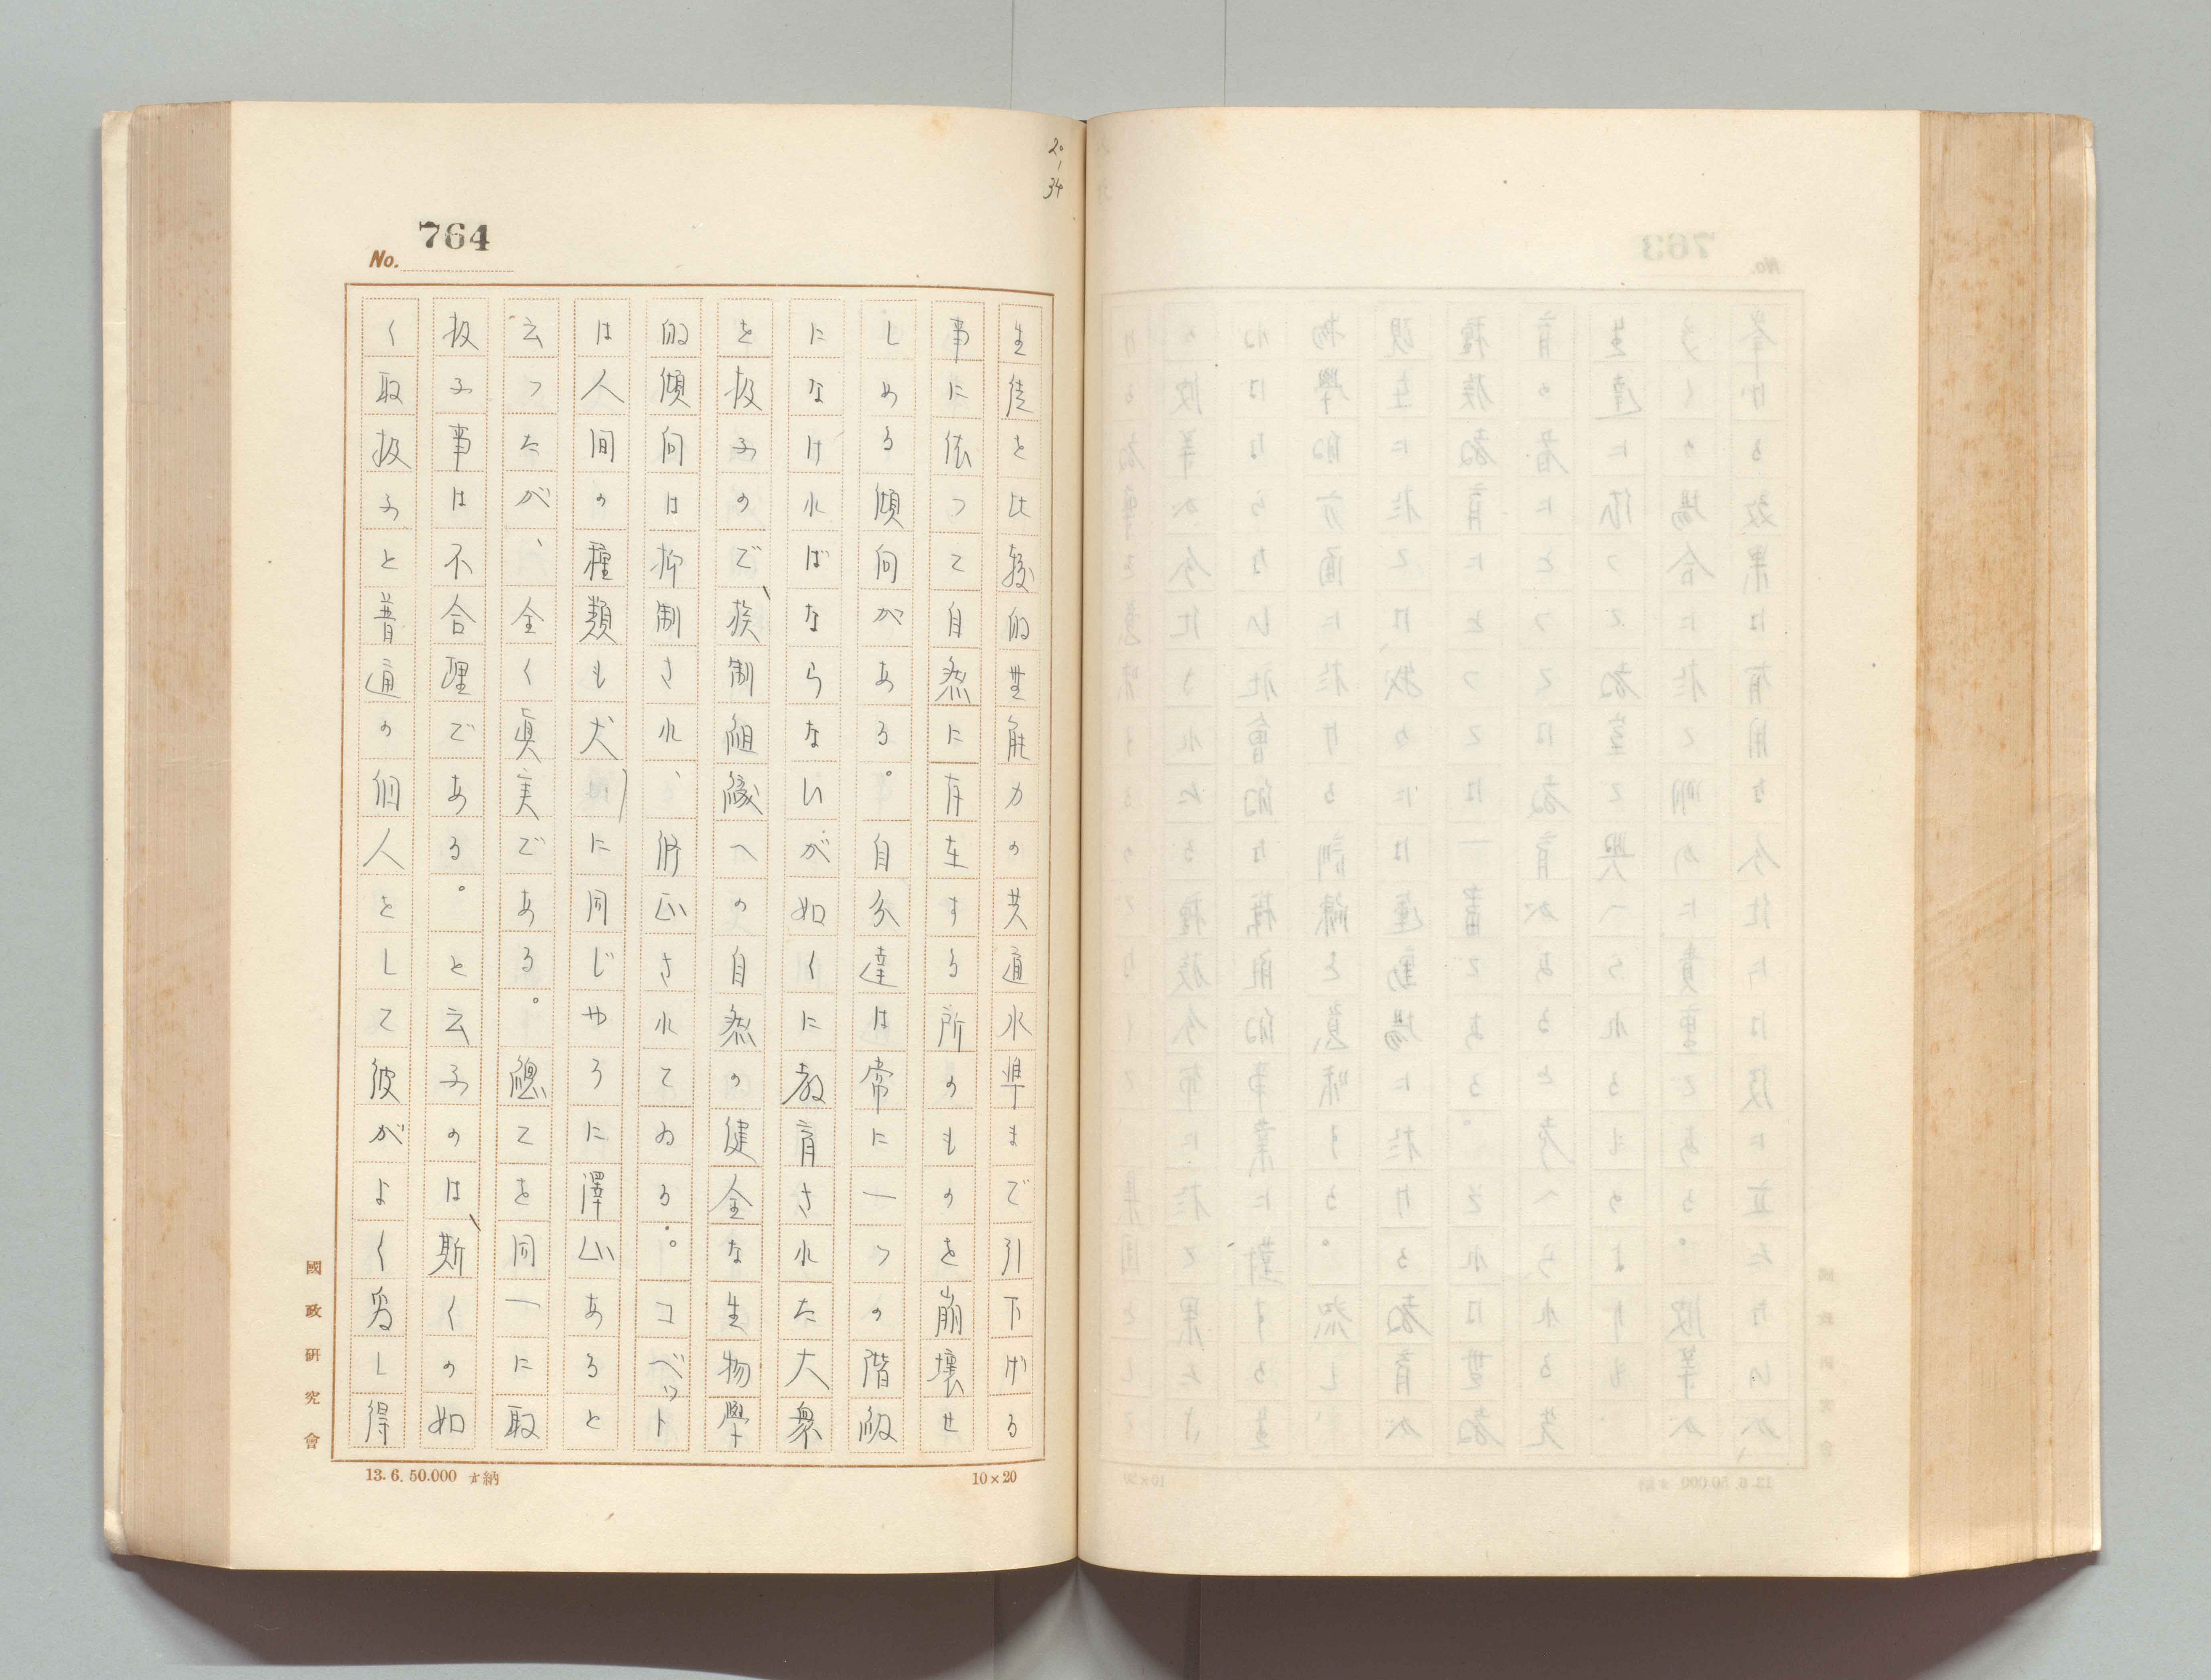 20,
34
No. 764
生徒を比較的無能力の共通水準まで引下げる
事に依つて自然に存在する所のものを崩壊せ
しめる傾向がある。自分達は常に一つの階級
になければならないが如くに教育された大衆
を扱ふので、族制組織への自然の健全な生物學
的傾向は抑制され、修正されてゐる。コベット
は人間の種類も犬に同じやうに澤山あると
云つたが、全く眞実である。總てを同一に取
扱ふ事は不合理である。と云ふのは、斯くの如
く取扱ふと普通の個人をして彼がよく為し得
國政研究會
13. 6. 50.000 納
10×20